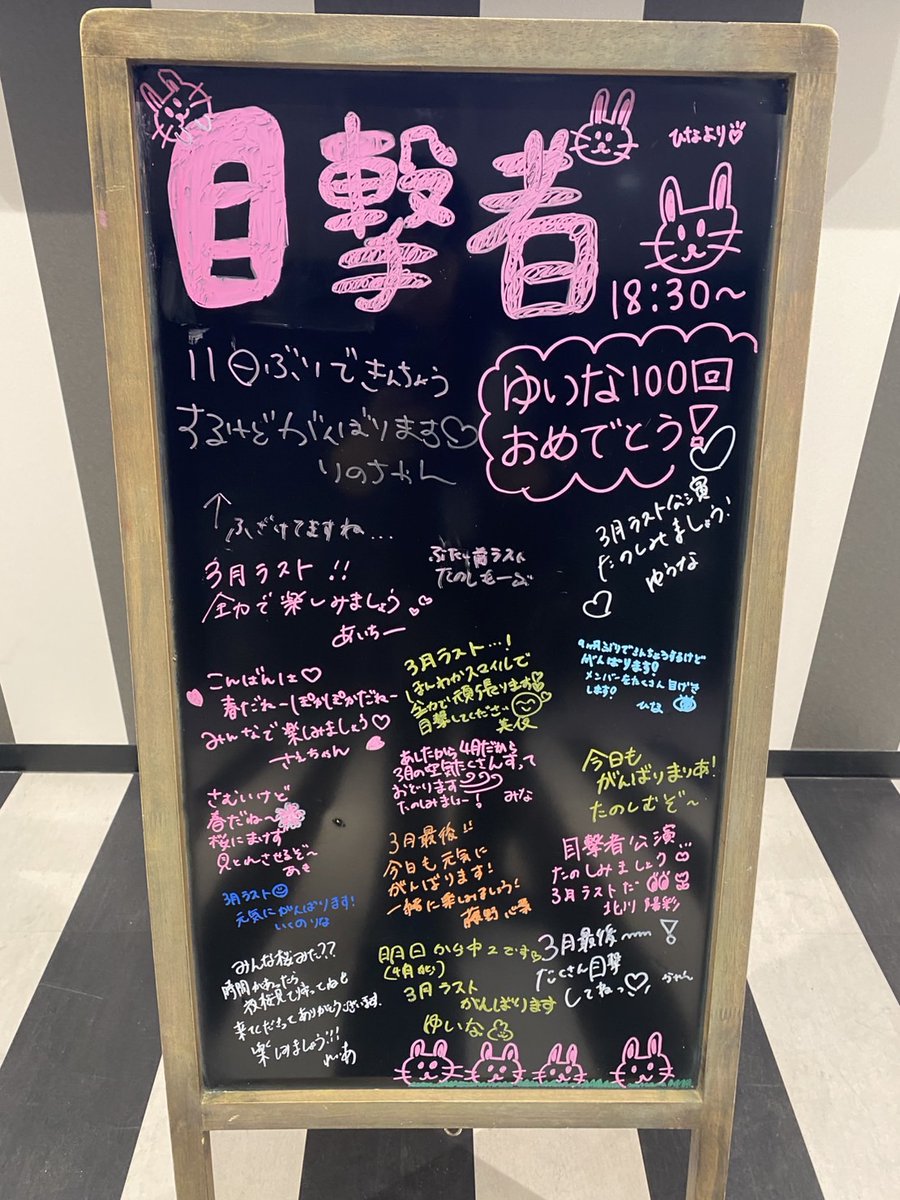 目撃者
ひなより
18:30～
11日ぶりできんちょう
するけどがんばります♡
りのちゃん
ゆいな100回
おめでとう!
↑
ふざけてますね…
3月ラスト公演
たのしみましょう!
ゆうな
3月ラスト!!
全力で楽しみましょう
あいちー
ぶたい前ラスト
たのしもーぶ
3月ラスト…!
ほんわかスマイルで
全力で頑張ります
目撃してください
美優
9ヶ月ぶりできんちょうするけど
がんばります!
メンバーをたくさん目げき
します!
ひな
こんばんは♡
春だねーぽかぽかだねー
みんなで楽しみましょう♡
さえちゃん
あしたから4月だから
3月の空気たくさんすって
おどります
たのしみましょー!
みな
今日も
がんばりまりあ!
たのしむぞ～
さむいけど
春だね～
桜にまけず
見とれさせるぞ～
あき
3月最後!!
今日も元気に
がんばります!
一緒に楽しみましょう!
藤野心葉
目撃者公演
たのしみましょう
3月ラストだ
北川陽彩
3月ラスト
元気にがんばります!
いくのりな
みんな桜みた??
時間があったら
夜桜見て帰ってねも
来てくださってありがとうございます!
楽しみましょう!!
明日から中2です
(4月から)
3月ラスト
がんばります
ゆいな
3月最後!
たくさん目撃
してねっ♡